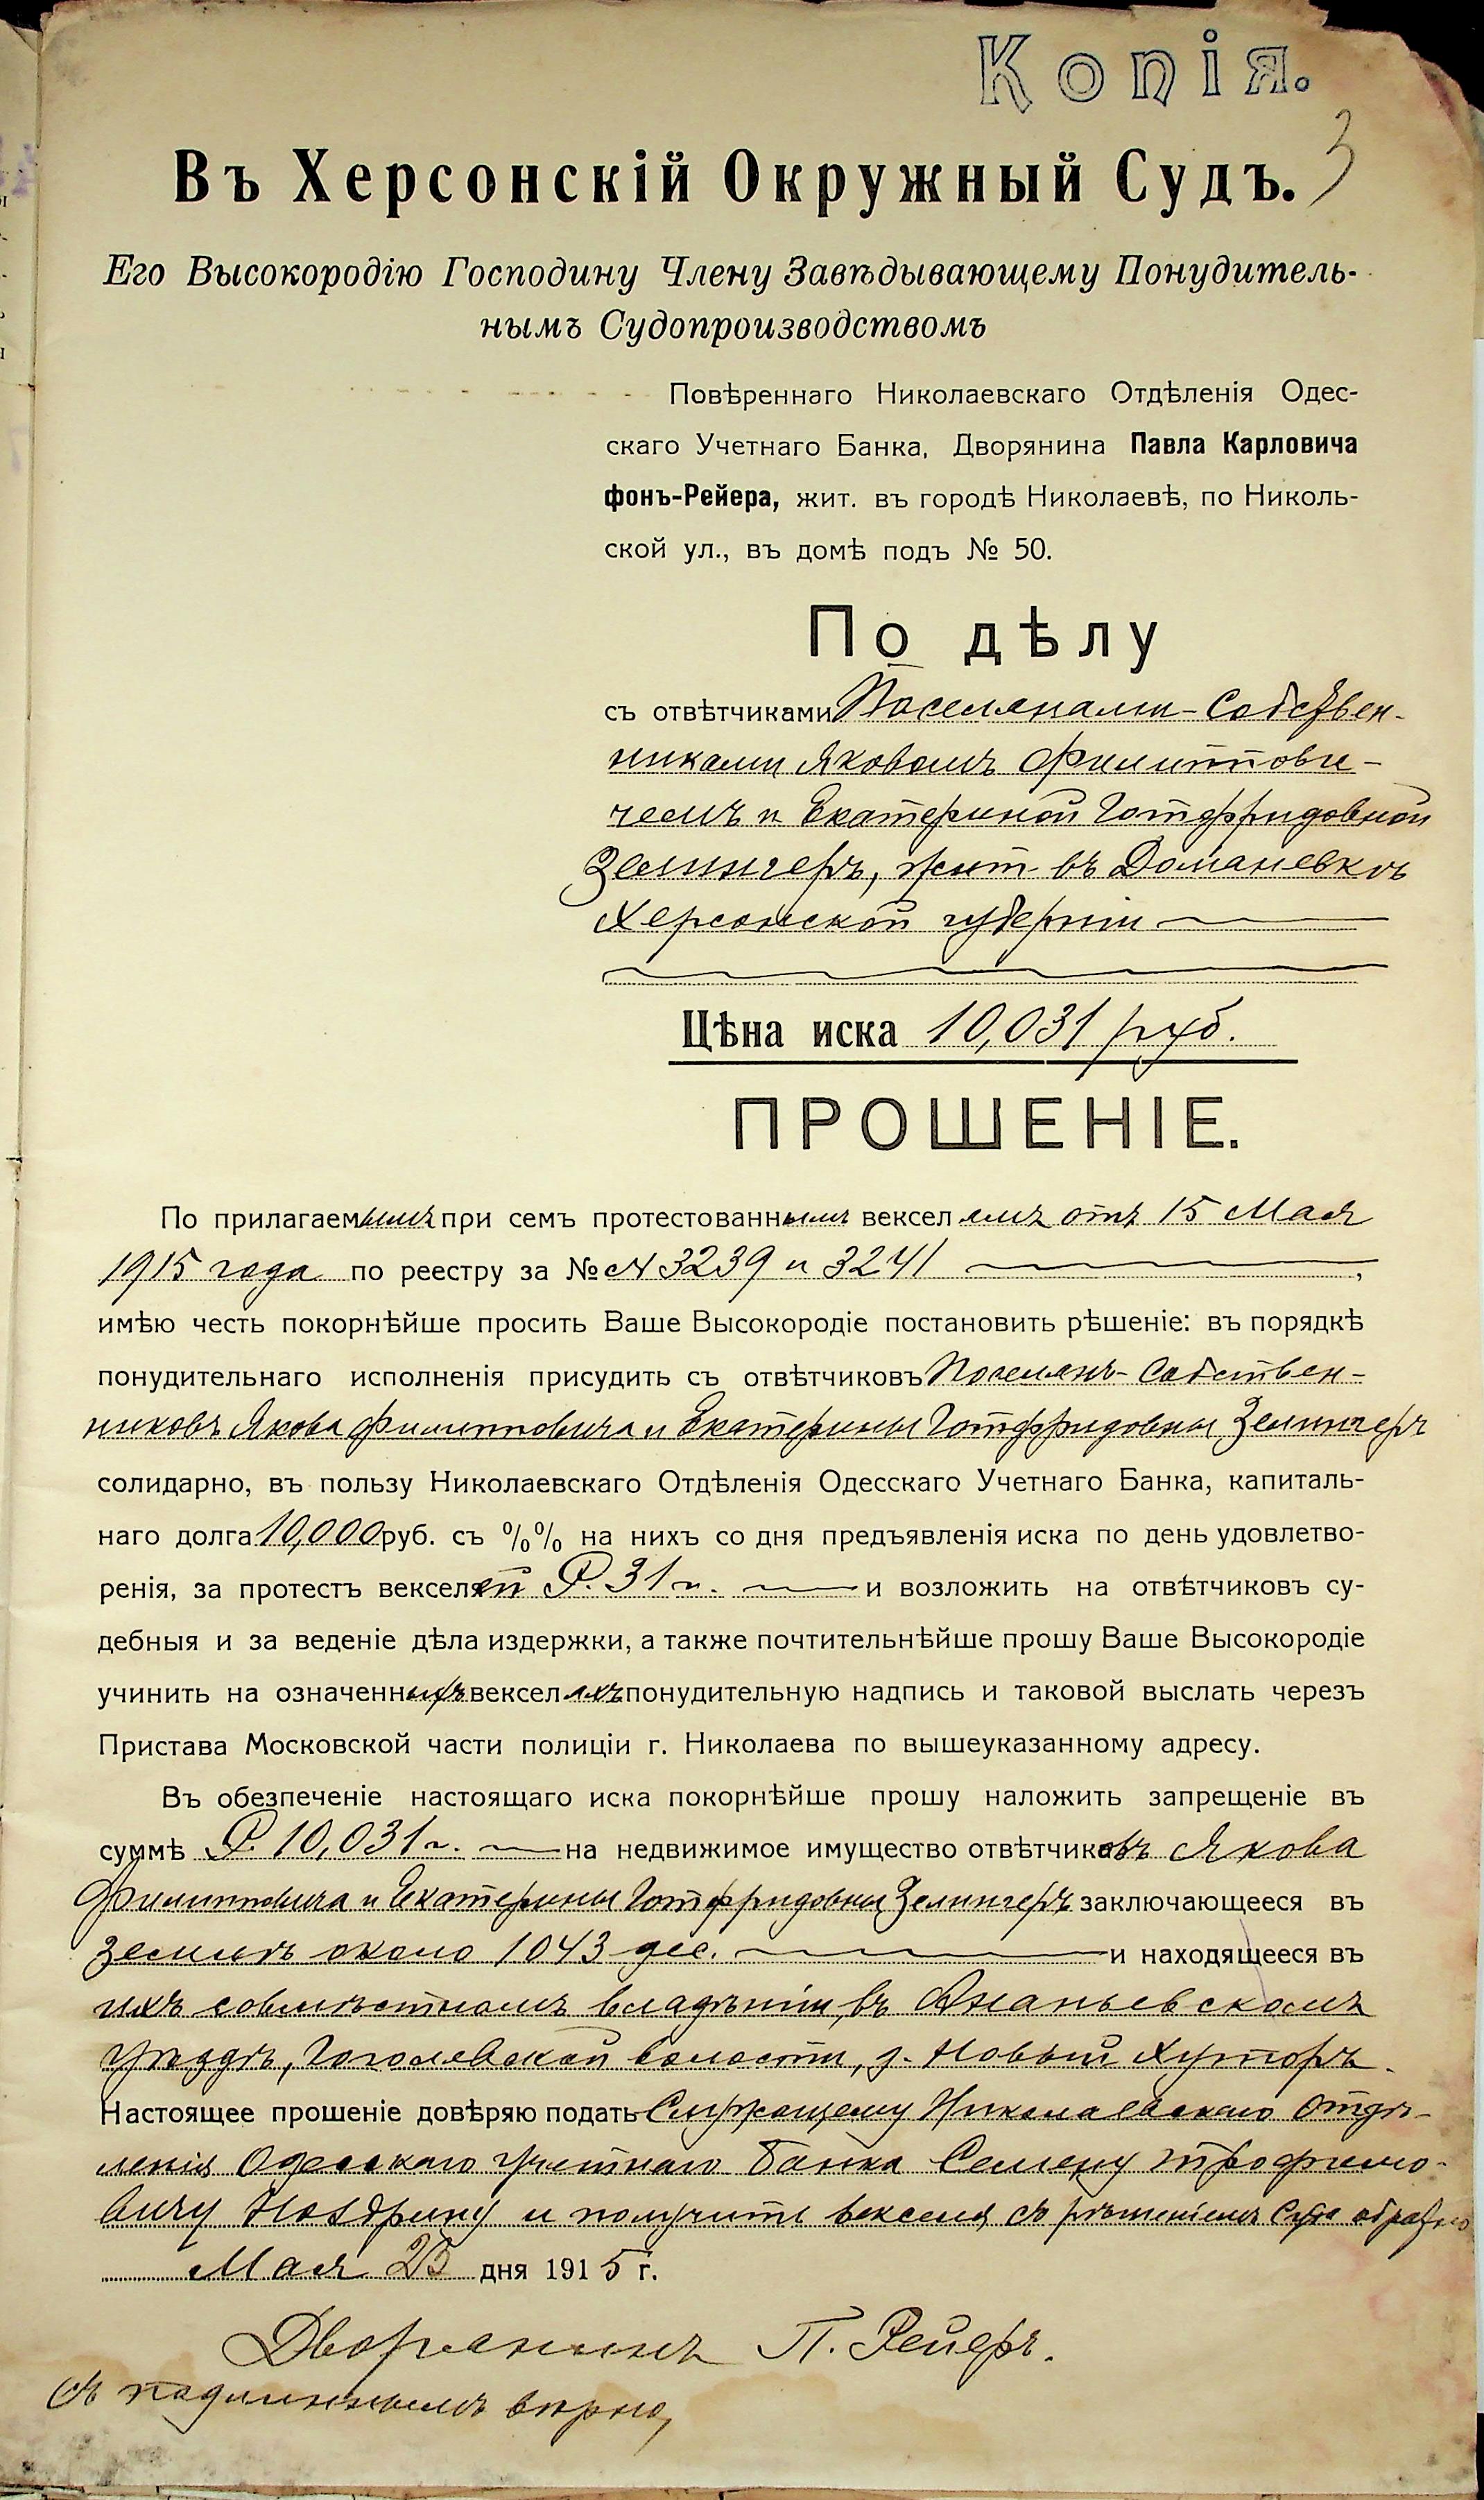 Копія.
3
Въ Херсонскій Окружный Судъ.
Его Высокородію Господину Члену Завѣдывающему Понудитель-
нымъ Судопроизводствомъ
Повѣреннаго Николаевскаго Отдѣленія Одес-
скаго Учетнаго Банка, Дворянина Павла Карловича
фонъ-Рейера, жит. въ городѣ Николаевѣ, по Николь-
ской ул., въ домѣ подъ № 50.
По дѣлу
съ отвѣтчиками Поселянами-Собствен-
никами Яковомъ Филиппови-
чемъ и Екатериной Готфридовной
Зелингеръ, жит. въ Доманевкѣ
Херсонской губерніи
Цѣна иска 10,031 руб.
ПРОШЕНІЕ.
По прилагаемымъ при семъ протестованнымъ векселямъ отъ 15 Мая
1915 года по реестру за №№ 3239 и 3241 ,
имѣю честь покорнѣйше просить Ваше Высокородіе постановить рѣшеніе: въ порядкѣ
понудительнаго исполненія присудить съ отвѣтчиковъ Поселянъ-Собствен-
никовъ Якова Филипповича и Екатерины Готфридовны Зелингеръ
солидарно, въ пользу Николаевскаго Отдѣленія Одесскаго Учетнаго Банка, капиталь-
наго долга 10,000 руб. съ %% на нихъ со дня предъявленія иска по день удовлетво-
ренія, за протестъ векселей Р. 31 и возложить на отвѣтчиковъ су-
дебныя и за веденіе дѣла издержки, а также почтительнѣйше прошу Ваше Высокородіе
учинить на означенныхъ векселяхъ понудительную надпись и таковой выслать черезъ
Пристава Московской части полиціи г. Николаева по вышеуказанному адресу.
Въ обезпеченіе настоящаго иска покорнѣйше прошу наложить запрещеніе въ
суммѣ Р. 10,031 на недвижимое имущество отвѣтчиковъ Якова
Филипповича и Екатерины Готфридовны Зелингеръ заключающееся въ
землѣ около 1043 дес. и находящееся въ
ихъ совмѣстномъ владѣніи, въ Ананьевскомъ
уѣздѣ, Гоголевской волости, д. Новый Хуторъ.
Настоящее прошеніе довѣряю подать Служащему Николаевскаго Отдѣ-
ленія Одесскаго Учетнаго Банка Семену Трофимо-
вичу Ноздрину и получить векселя съ рѣшеніемъ Суда обратно
Мая 25 дня 1915 г.
Дворянинъ П. Рейеръ.
Съ подлиннымъ вѣрно,